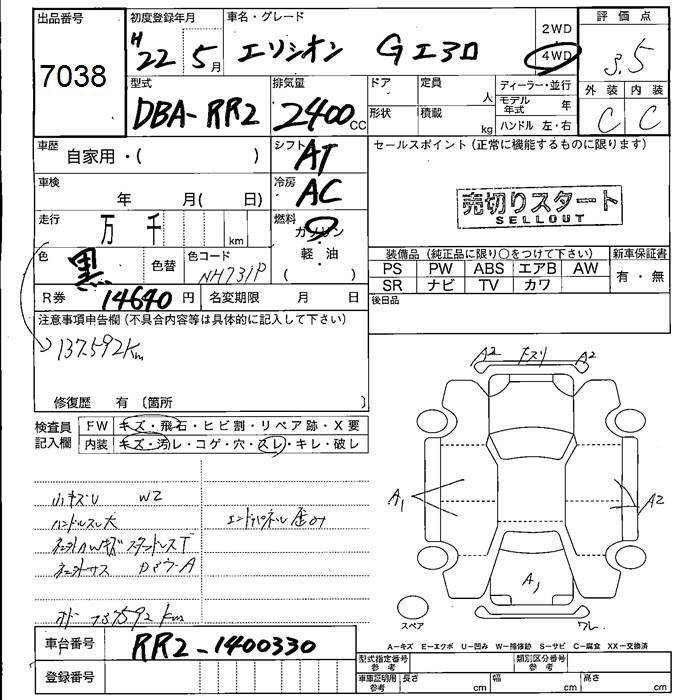 出品番号
7038
初度登録年月
H22 5月
車名・グレード
エリシオン Gエアロ
2WD
4WD
評価点
3.5
外装 内装
C C
型式
DBA-RR2
排気量
2400 CC
ドア
定員
人
形状
積載
kg
ディーラー・並行
モデル年式 年
ハンドル 左・右
車歴
自家用・( )
シフト
AT
セールスポイント (正常に機能するものに限ります)
売切りスタート
SELLOUT
車検
年 月( 日)
冷房
AC
走行
万 千 km
燃料
ガソリン
軽・油
( )
色
黒
色替
色コード
NH731P
装備品 (純正品に限り○をつけて下さい)
新車保証書
PS PW ABS エアB AW
有・無
SR ナビ TV カワ
R券 14640 円
名変期限 月 日
後日品
注意事項申告欄 (不具合内容等は具体的に記入して下さい)
137.592Km
修復歴 有 (箇所 )
検査員記入欄
FW キズ・飛石・ヒビ割・リペア跡・X要
内装 キズ・汚レ・コゲ・穴・スレ・キレ・破レ
小キズU W2
ハンドルスレ大
エンドパネル歪み
A2 A2
A1
A2
A1
スペア
ワレ
車台番号 RR2-1400330
登録番号
A-キズ E-エクボ U-凹み W-補修跡 S-サビ C-腐食 XX-交換済
型式指定番号 参考
類別区分番号 参考
車庫証明用 参考
長さ cm
幅 cm
高さ cm